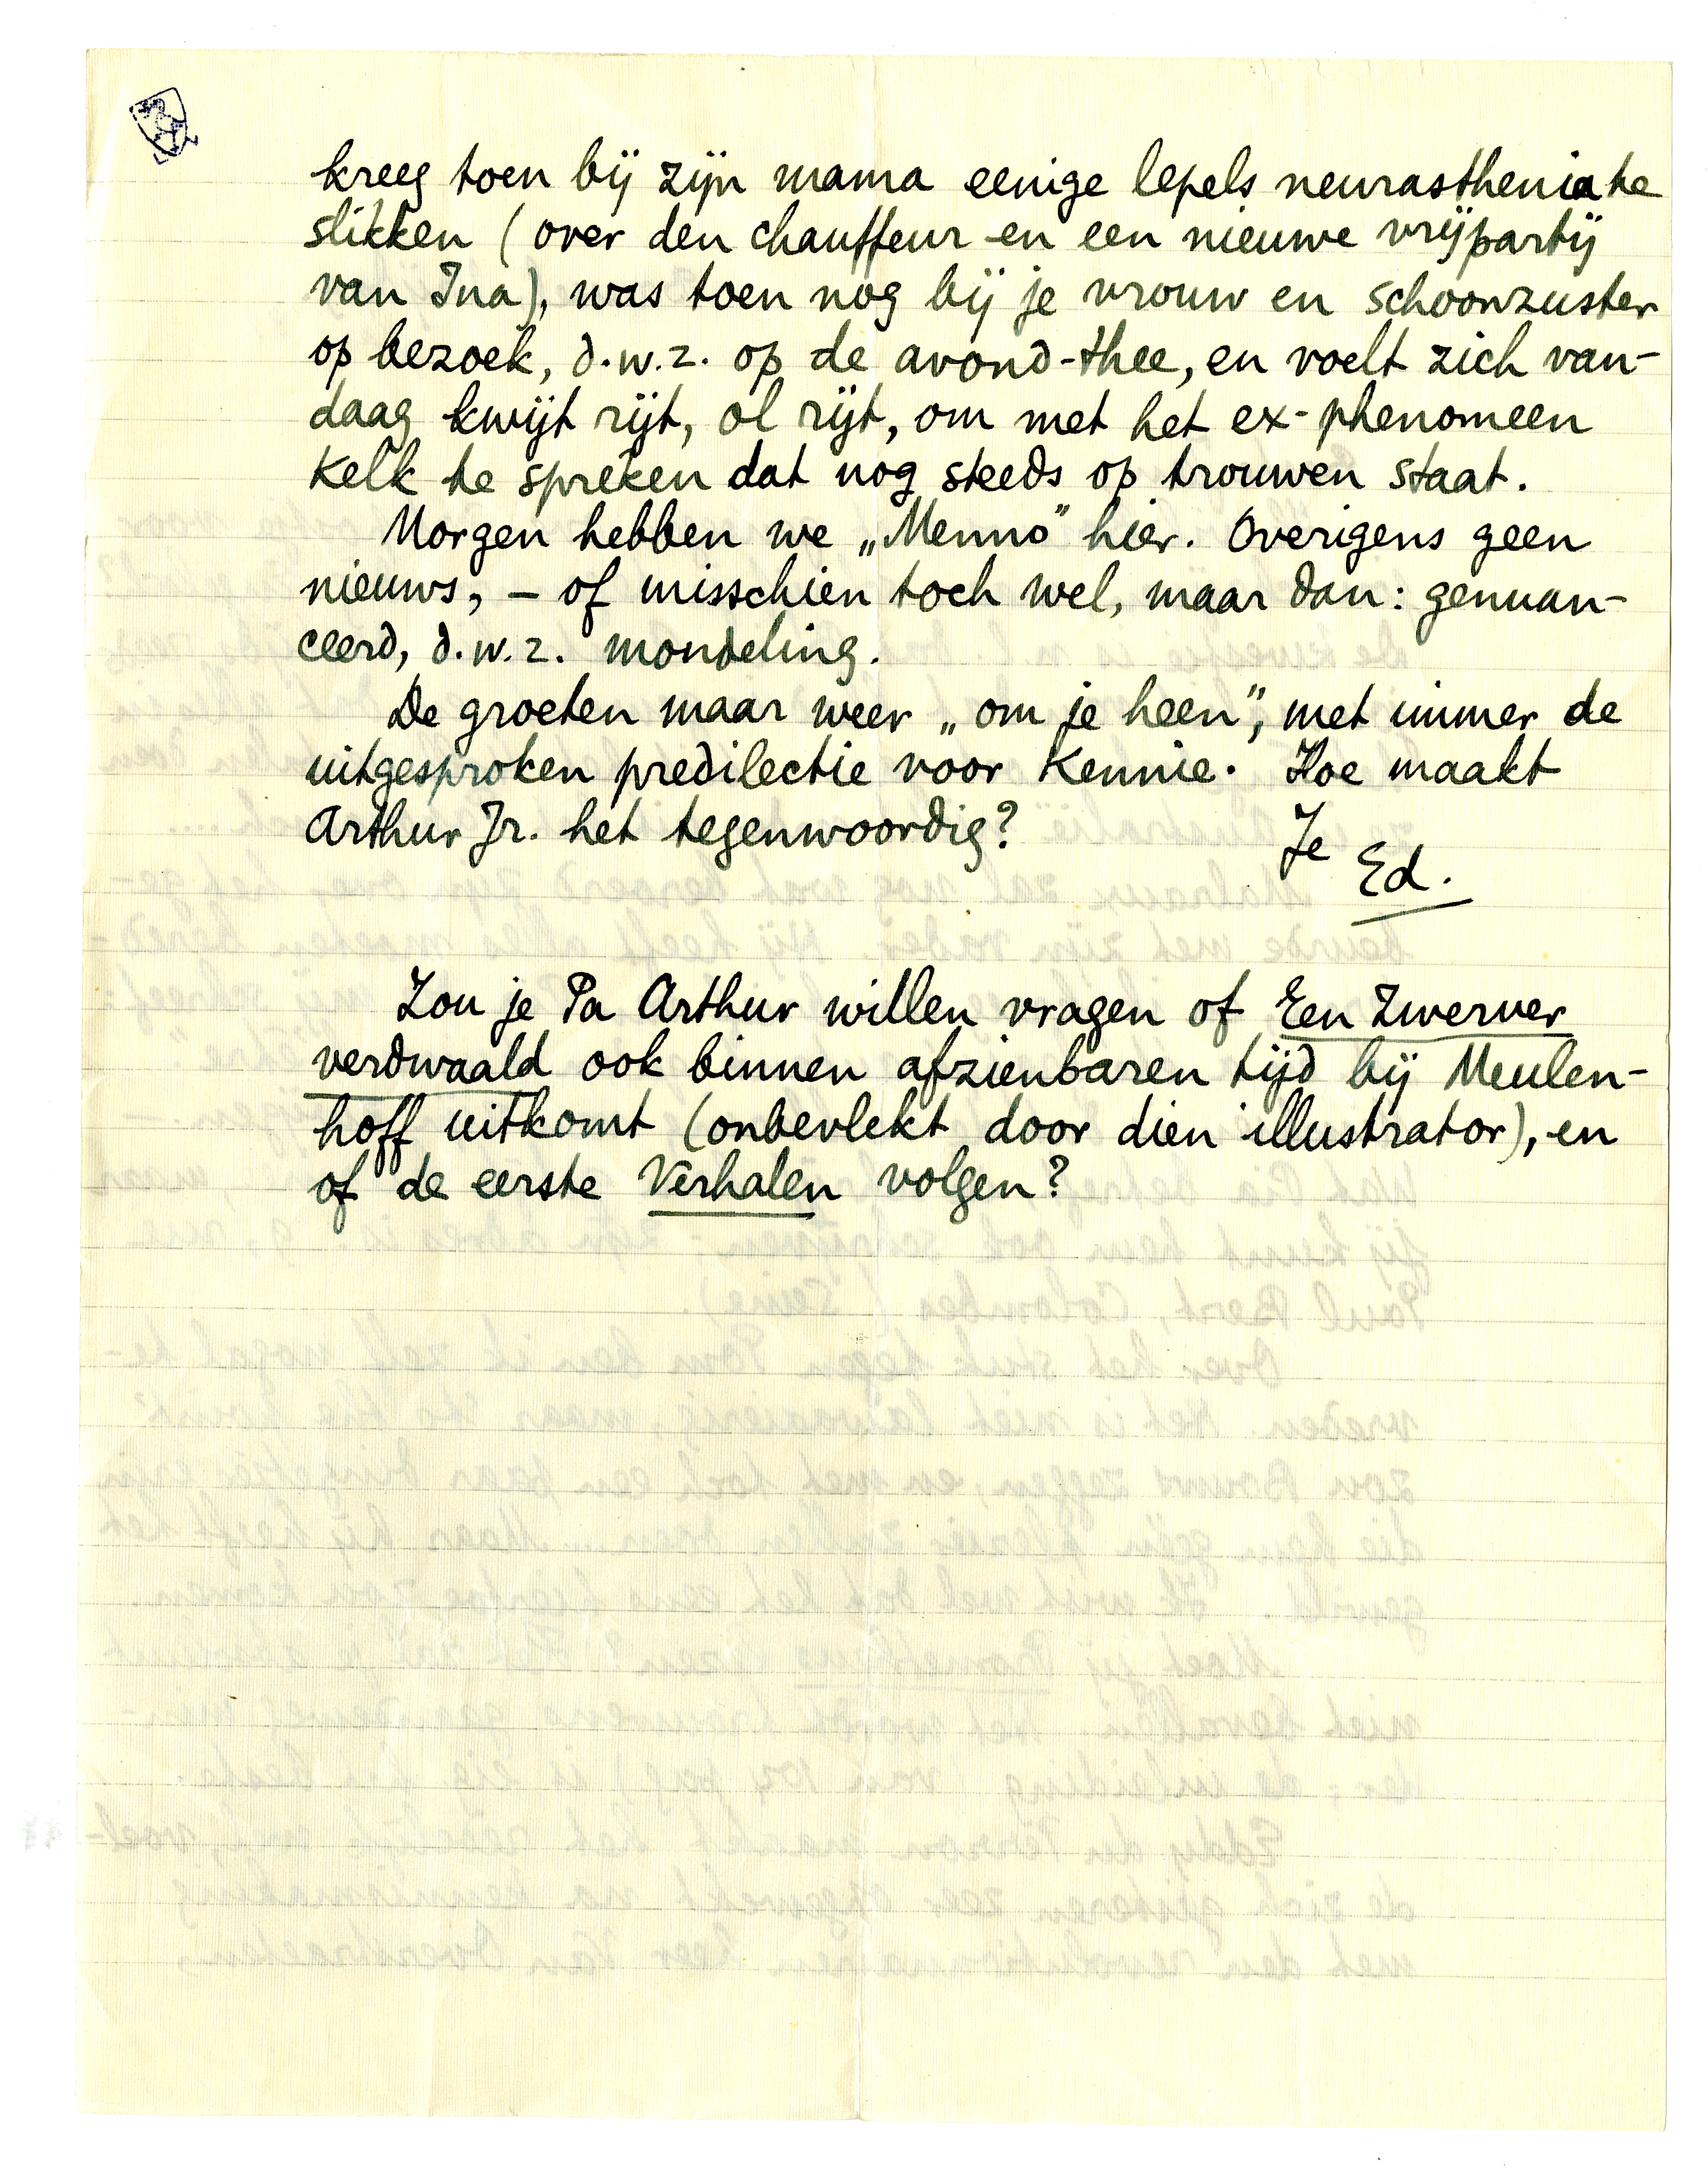 kreeg toen bij zijn mama eenige lepels neurasthenia te
slikken (over den chauffeur en een nieuwe vrijpartij
van Ina), was toen nog bij je vrouw en schoonzuster
op bezoek, d.w.z. op de avond-thee, en voelt zich van-
daag kwijt rijt, ol rijt, om met het ex-phenomeen
Kelk te spreken dat nog steeds op trouwen staat.
Morgen hebben we „Menno" hier. Overigens geen
nieuws, – of misschien toch wel, maar dan: genuan-
ceerd, d.w.z. mondeling.
De groeten maar weer „om je heen", met immer de
uitgesproken predilectie voor Kennie. Hoe maakt
Arthur Jr. het tegenwoordig?
Je
Ed.
Zou je Pa Arthur willen vragen of Een Zwerver
verdwaald ook binnen afzienbaren tijd bij Meulen-
hoff uitkomt (onbevlekt door dien illustrator), en
of de eerste Verhalen volgen?